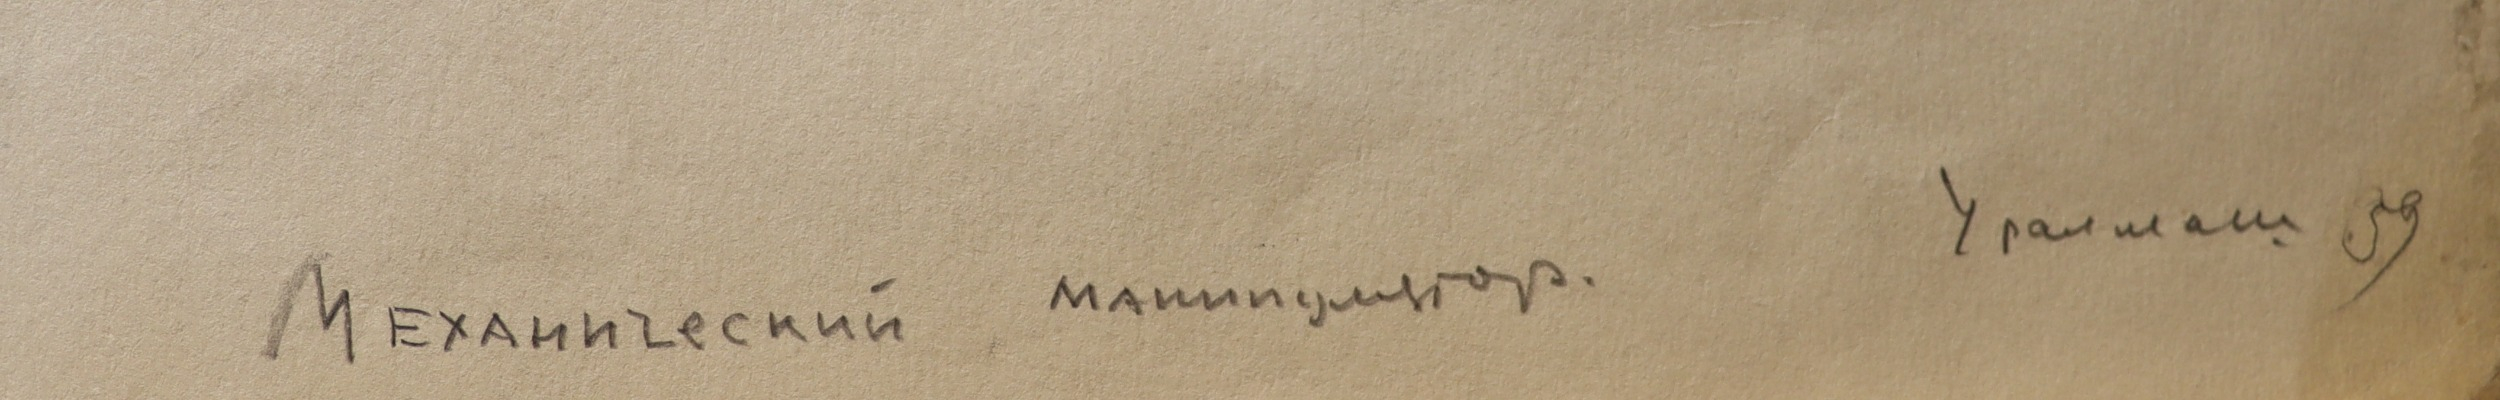 Механический манипулятор.
Уралмаш 59